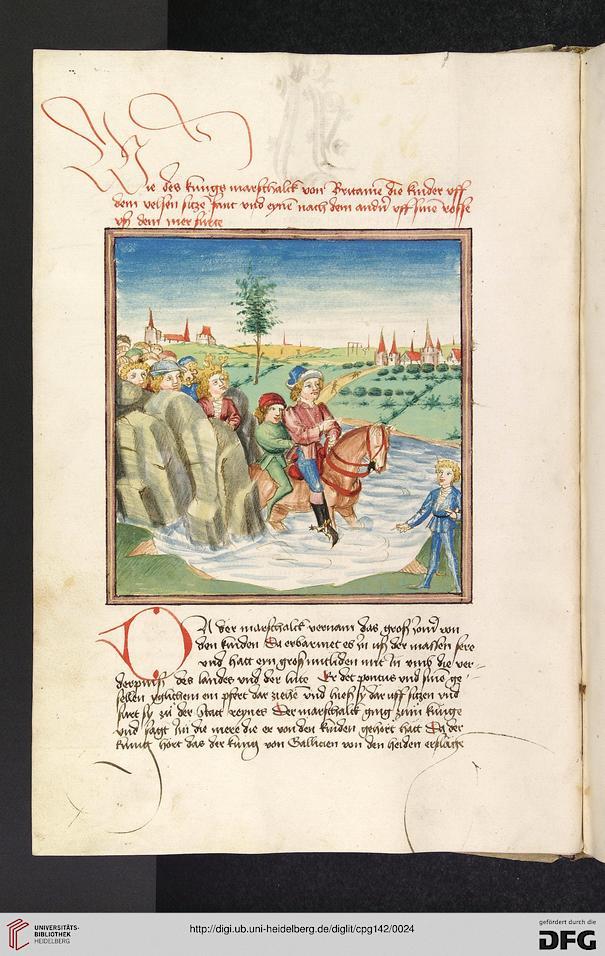 Wie des kunigs marschalck von Britanie die kinder vff
dem velsen sitze fant vnd eynē nach dem andrn vff sinē rosse
vß dem mer furte
DA der marschalck vernam das groß von
den kinden Da erbarmet es in vß der massen sere
vnd hatt eyn groß mitliden mit in vmb die ver-
derpniß des landes vnd der lute Er det pontus vnd sine ge-
sellen yglichem ein pfert dar ziehē vnd hieß sy dar vff sitzen vnd
furt sy zů der statt reynes Der marschalck ging zum kunige
vnd sagt im die mere die er von den kinden gehort hatt Da der
kunig hort das der kunig von Gallicien von den heiden erslagē
UNIVERSITÄTS-
BIBLIOTHEK
HEIDELBERG
http://digi.ub.uni-heidelberg.de/diglit/cpg142/0024
gefördert durch die
DFG